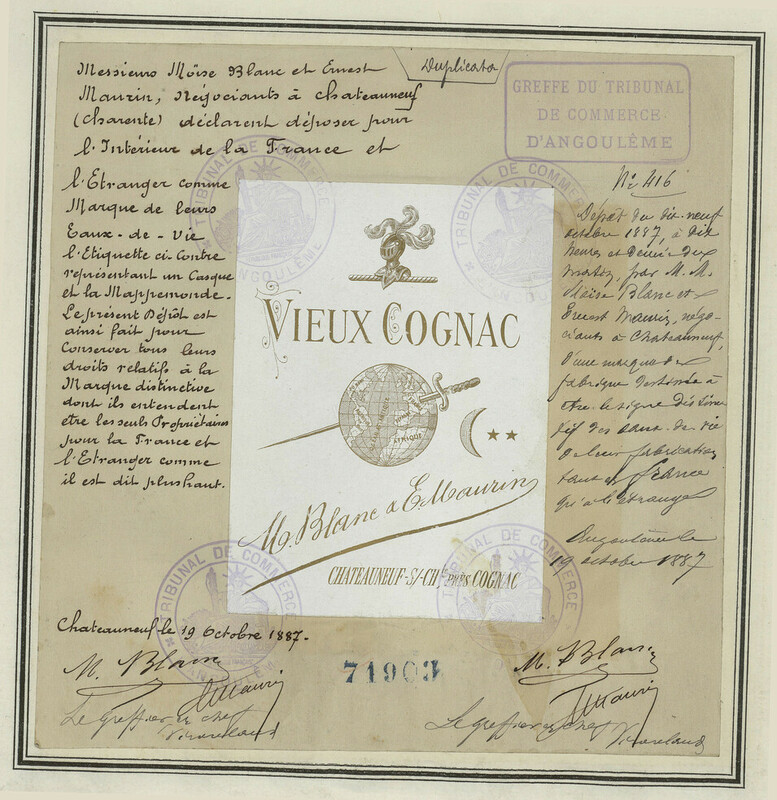 Duplicata
Messieurs Moïse Blanc et Ernest
Maurin, Négociants à Chateauneuf
(Charente) déclarent déposer pour
l'Intérieur de la France et
l'Etranger comme
Marque de leurs
Eaux-de-Vie
l'Etiquette ci-Contre
représentant un Casque
et la Mappemonde.
Le présent Dépôt est
ainsi fait pour
Conserver tous leurs
droits relatifs à la
Marque distinctive
dont ils entendent
etre les seuls Propriétaires
pour la France et
l'Etranger comme
il est dit plus haut.
Chateauneuf le 19 Octobre 1887.
M. Blanc
E Maurin
Le greffier en chef
GREFFE DU TRIBUNAL
DE COMMERCE
D'ANGOULÊME
TRIBUNAL DE COMMERCE
ANGOULÊME
TRIBUNAL DE COMMERCE
VIEUX COGNAC
AFRIQUE
M. Blanc & E. Maurin
CHATEAUNEUF-S/-CHTE PRÈS COGNAC
TRIBUNAL DE COMMERCE
TRIBUNAL DE COMMERCE
71903
No 416
Dépôt du dix-neuf
octobre 1887, à dix
heures et demie du
matin, par M. M.
Moïse Blanc et
Ernest Maurin, négo-
ciants à Chateauneuf,
d'une marque de
fabrique destinée à
être le signe distinc
tif des eaux-de-vie
de leur fabrication
tant en France
qu'à l'étranger
Angoulême le
19 octobre 1887
M. Blanc
E Maurin
Le greffier en chef